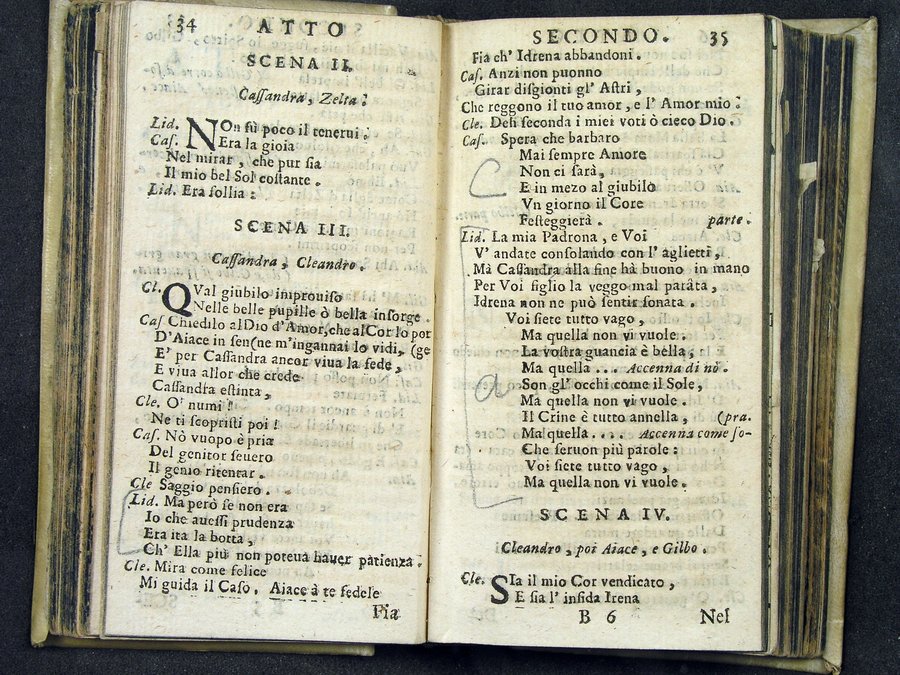 34 ATTO
SCENA II.
Caſſandra, Zelta.
Lid. NOn ſù poco il tenerui.
Caſ. Era la gioia
Nel mirar, che pur ſia
Il mio bel Sol coſtante.
Lid. Era follia.
SCENA III.
Caſſandra, Cleandro.
Cl. QVal giubilo improuiſo
Nelle belle pupille ò bella inſorge.
Caſ Chiedilo al Dio d'Amor, che al Cor lo por
D'Aiace in ſen (ne m'ingannai lo vidi, (ge
E' per Caſſandra ancor viua la fede,
E viua allor che crede
Caſſandra eſtinta,
Cle. O' numi!
Ne ti ſcopriſti poi!
Caſ. Nò vuopo è pria
Del genitor ſeuero
Il genio ritentar.
Cle Saggio penſiero.
Lid. Ma però ſe non era
Io che aueſſi prudenza
Era ita la botta,
Ch' Ella più non poteua hauer patienza.
Cle. Mira come felice
Mi guida il Caſo. Aiace à te fedele
Fia
SECONDO. 35
Fia ch' Idrena abbandoni.
Caſ. Anzi non puonno
Girar diſgionti gl' Aſtri,
Che reggono il tuo amor, e l' Amor mio.
Cle. Deh ſeconda i miei voti ò cieco Dio.
Caſ. Spera che barbaro
Mai ſempre Amore
Non ci ſarà,
E in mezo al giubilo
Vn giorno il Core
Feſteggierà. parte.
Lid. La mia Padrona, e Voi
V' andate conſolando con l' aglietti,
Mà Caſſandra alla fine hà buono in mano
Per Voi figlio la veggo mal parata,
Idrena non ne può ſentir ſonata.
Voi ſiete tutto vago,
Ma quella non vi vuole.
La voſtra guancia è bella,
Ma quella ... Accenna di nò.
Son gl' occhi come il Sole,
Ma quella non vi vuole.
Il Crine è tutto annella, (pra.
Ma quella .... Accenna come ſo-
Che ſeruon più parole:
Voi ſiete tutto vago,
Ma quella non vi vuole.
SCENA IV.
Cleandro, poi Aiace, e Gilbo.
Cle. SIa il mio Cor vendicato,
E ſia l' infida Irena
B 6 Nel